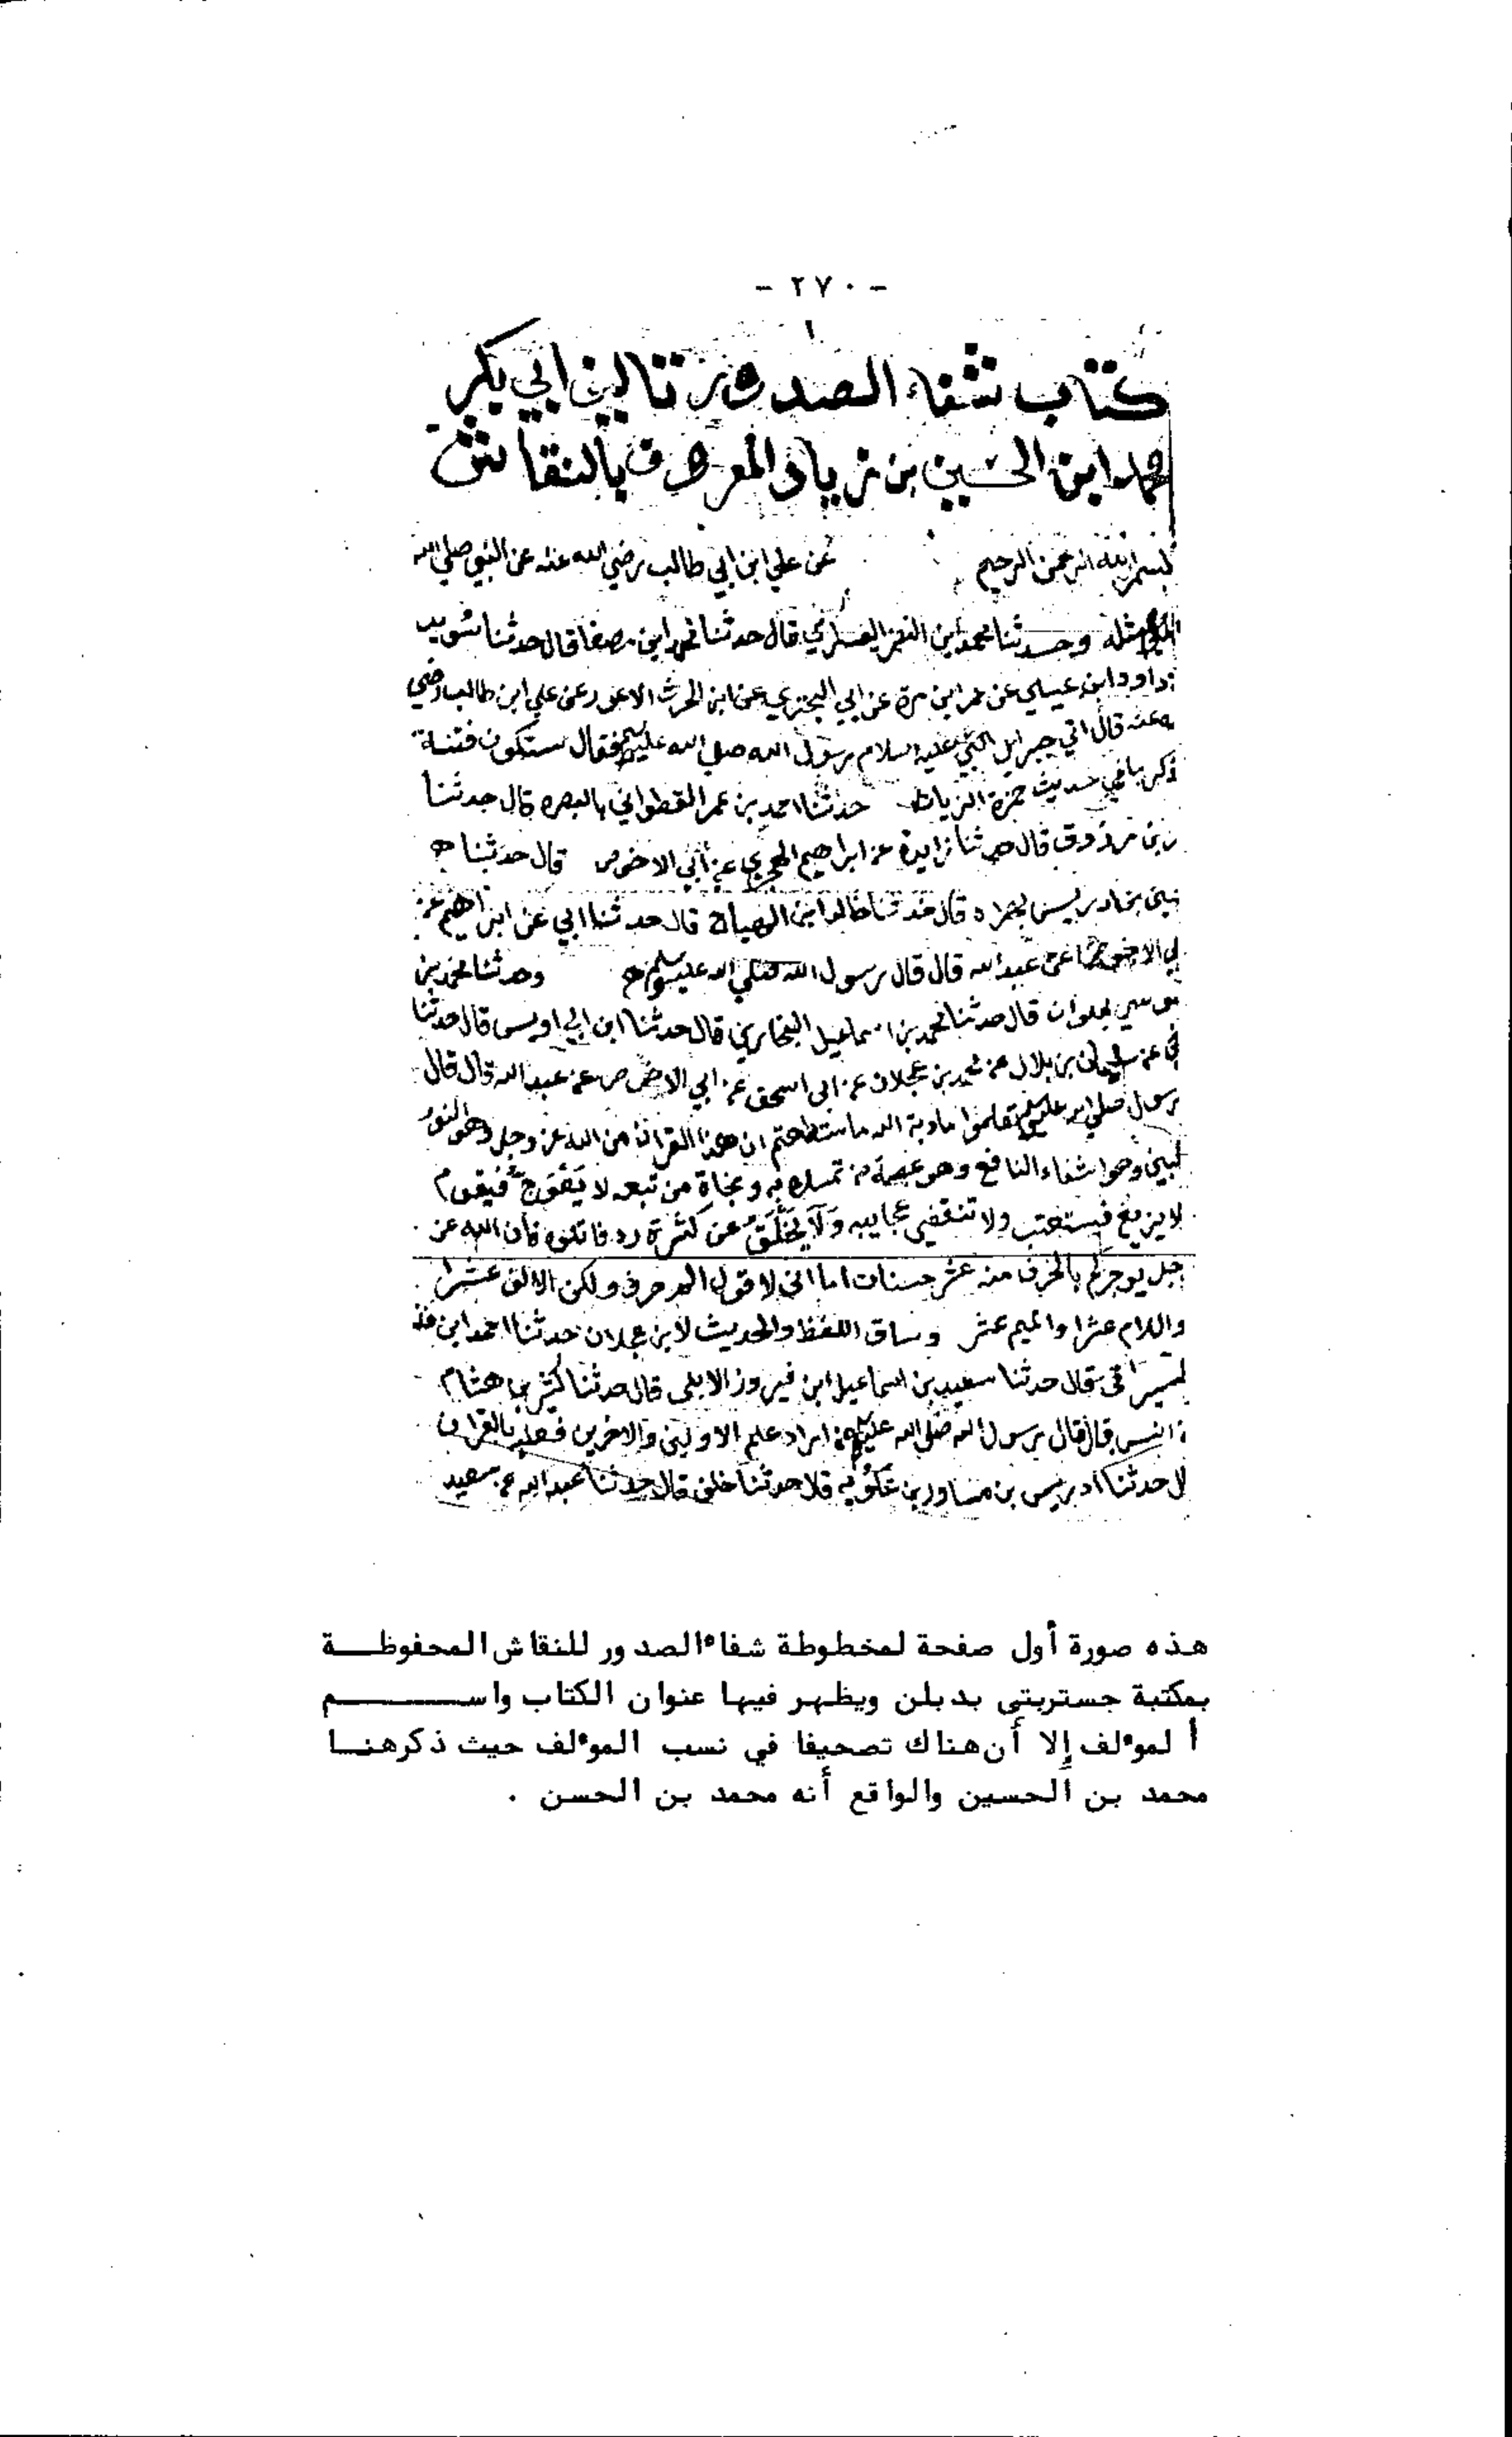 - ٢٧٠ -
١
كتاب شفاء الصدور تاليف ابي بكر
محمد ابن الحسين بن زياد المعروف بالنقاش
بسم الله الرحمن الرحيم عن علي ابن ابي طالب رضي الله عنه عن النبي صلي الله
مثله وحدثنا محمد ابن العسكري قال حدثنا محمد ابن مصفا قال حدثنا سويد
داود ابن عيسي عن عمر ابن مرة عن ابي البختري عن ابن الحرث الاعور عن علي ابن طالب رضي
عنه قال اتي جبرايل النبي عليه السلام رسول الله صلي الله عليه فقال ستكون فتنة
ذكر باقي حديث حمزة الزيات حدثنا احمد بن عمر القطواني بالبصره قال حدثنا
بن مرزوق قال حدثنا زايدة عن ابراهيم الهجري عن ابي الاحوص قال حدثنا
قال حدثنا خالد ابن الهياج قال حدثنا ابي عن ابراهيم عن
عن عبد الله قال قال رسول الله صلي الله عليه وسلم ح وحدثنا محمد بن
موسي بحلوان قال حدثنا محمد بن اسماعيل البخاري قال حدثنا ابن ابي اويس قال حدثنا
عن سليمان بن بلال عن محمد بن عجلان عن ابي اسحق عن ابي الاحوص عن عبد الله قال قال
رسول صلي الله عليه تعلموا مادبة الله ما ستطعتم ان هذا القران من الله عز وجل وهو النور
لمبين وهوا شفاء النافع وهو عصمة من تمسك به ونجاة من تبعه لا يَعْوَجّ فيقوم
لا يزيغ فيستعتب ولا تنقضي عجايبه وَلاَ يَخْلَقُ عن كثرة رد فاتلوه فان الله عز
جل يوجركم بالحرف منه عشر حسنات اما اني لا قول الم حرف ولكن الالف عشرا
واللام عشرا والميم عشر وساق اللفظ والحديث لابن عجلان حدثنا احمد ابن
قال حدثنا سعيد بن اسماعيل ابن فيروز الابلي قال حدثنا كثير بن هشام
انس قال قال رسول الله صلي الله عليه من اراد علم الاولين والاخرين فعليه بالقران
ل حدثنا ادريس بن مساور بن قلا حدثنا خلف قال حدثنا عبد الله عن سعيد
هذه صورة أول صفحة لمخطوطة شفاء الصدور للنقاش المحفوظـــة
بمكتبة جستربتى بدبلن ويظهر فيها عنوان الكتاب واســـــم
ألموءلف إلا أن هناك تصحيفا في نسب الموءلف حيث ذكر هنـــا
محمد بن الحسين والواقع أنه محمد بن الحسن .